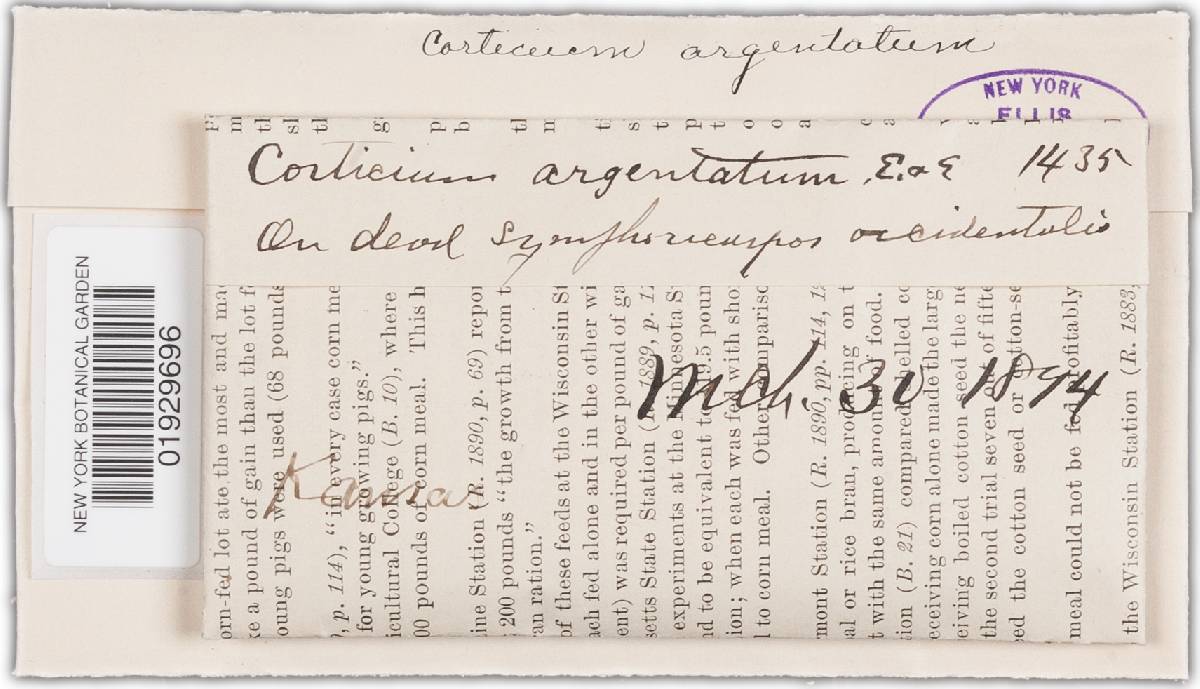 Corticium argentatum
NEW YORK
ELLIS
Corticium argentatum, E. & E 1435
On dead Symphoricarpos occidentalis
Mch. 30 1894
Kansas
NEW YORK BOTANICAL GARDEN
01929696
orn-fed lot ate the most and
e a pound of gain than the lot
oung pigs were used (68 pounds
, p. 114), "in every case corn
for young growing pigs."
icultural College (B. 10), where
00 pounds of corn meal. This
ine Station (R. 1890, p. 69)
200 pounds "the growth from
an ration."
of these feeds at the Wisconsin
ach fed alone and in the other
ent) was required per pound of
setts State Station (R. 1889, p.
experiments at the Minnesota
nd to be equivalent to 19.5
ion; when each was fed with
to corn meal. Other
rmont Station (R. 1890, pp. 114,
al or rice bran, producing on
t with the same amount of food.
ion (B. 21) compared shelled
eceiving corn alone made the
eiving boiled cotton seed the
the second trial seven of
ed the cotton seed or
meal could not be fed profitably
the Wisconsin Station (R. 1883,